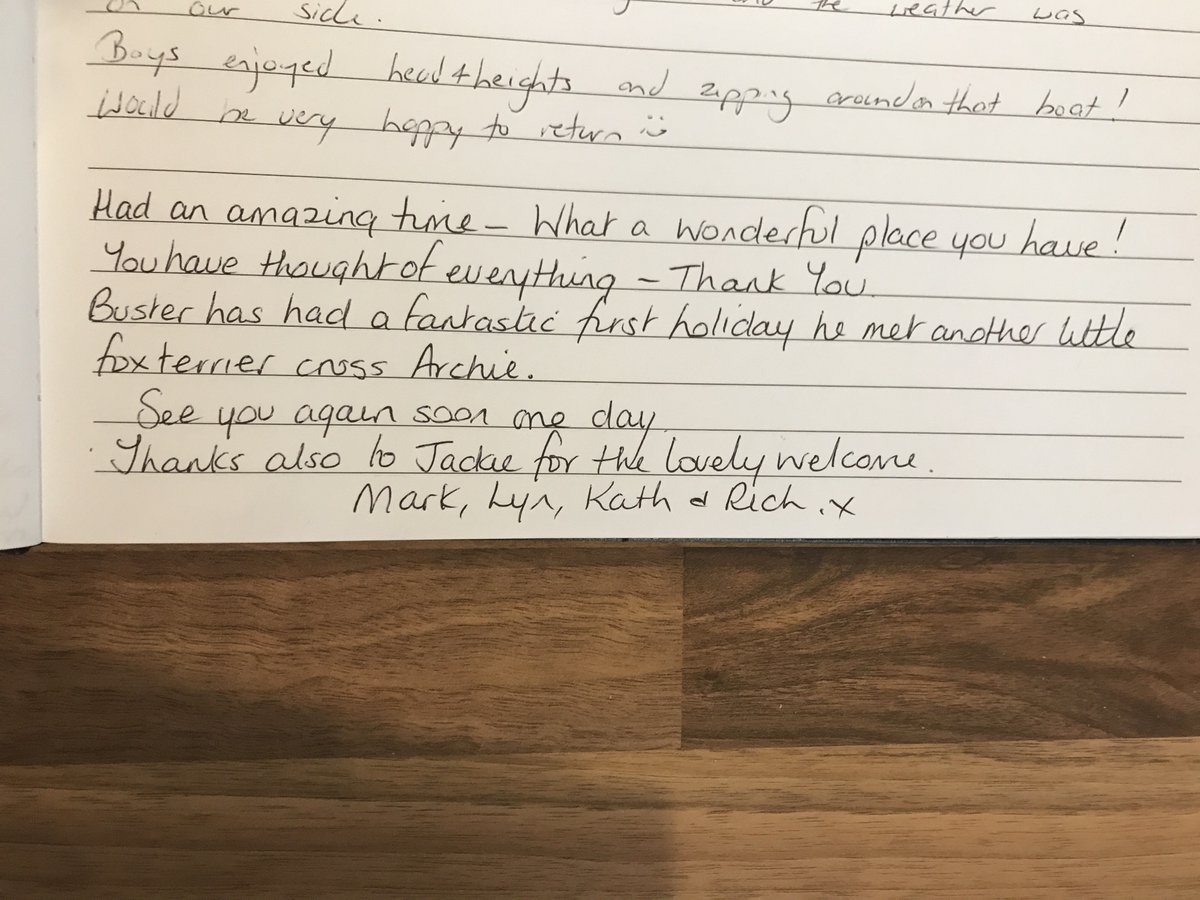 on our side. the weather was
Boys enjoyed head4heights and zipping around on that boat!
Would be very happy to return
Had an amazing time – What a wonderful place you have!
You have thought of everything – Thank You.
Buster has had a fantastic first holiday he met another little
fox terrier cross Archie.
See you again soon one day.
Thanks also to Jackie for the lovely welcome.
Mark, Lyn, Kath & Rich. x